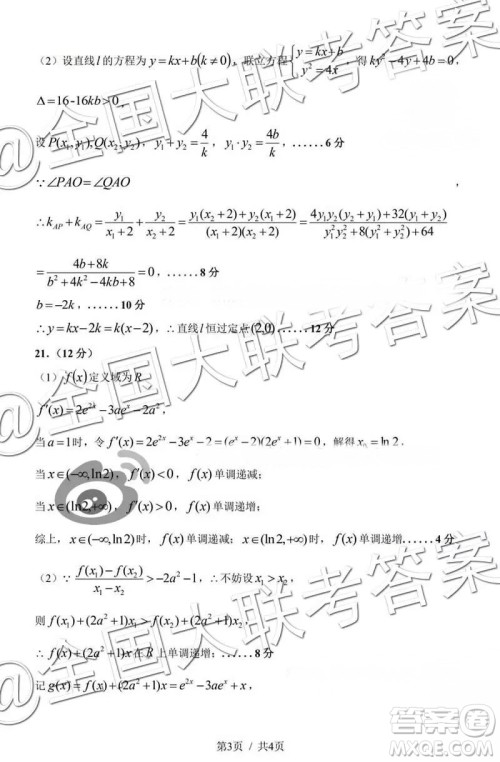 （2）设直线l的方程为y=kx+b(k≠0)，联立方程{y=kx+b, y²=4x，得ky²-4y+4b=0，
Δ=16-16kb>0，
设P(x₁,y₁),Q(x₂,y₂)，y₁+y₂=4/k，y₁·y₂=4b/k，......6分
∵∠PAO=∠QAO，
∴k_AP+k_AQ=y₁/(x₁+2)+y₂/(x₂+2)=(y₁(x₂+2)+y₂(x₁+2))/((x₁+2)(x₂+2))=(4y₁y₂(y₁+y₂)+32(y₁+y₂))/(y₁²y₂²+8(y₁²+y₂²)+64)
=(4b+8k)/(b²+4k²-4kb+8)=0，......8分
b=-2k，......10分
∴y=kx-2k=k(x-2)，∴直线l恒过定点(2,0)......12分
21.（12分）
（1）f(x)定义域为R
f′(x)=2e^{2x}-3ae^x-2a²，
当a=1时，令f′(x)=2e^{2x}-3e^x-2=(e^x-2)(2e^x+1)=0，解得x=ln2.
当x∈(-∞,ln2)，f′(x)<0，f(x)单调递减；
当x∈(ln2,+∞)，f′(x)>0，f(x)单调递增；
综上，x∈(-∞,ln2)时，f(x)单调递减；x∈(ln2,+∞)时，f(x)单调递增......4分
（2）∵(f(x₁)-f(x₂))/(x₁-x₂)>-2a²-1，∴不妨设x₁>x₂，
则f(x₁)+(2a²+1)x₁>f(x₂)+(2a²+1)x₂，
∴f(x)+(2a²+1)x在R上单调递增；......8分
记g(x)=f(x)+(2a²+1)x=e^{2x}-3ae^x+x，
第3页 / 共4页
@全国大联考答案
@全国大联考答案
答案圈
MXQE.COM